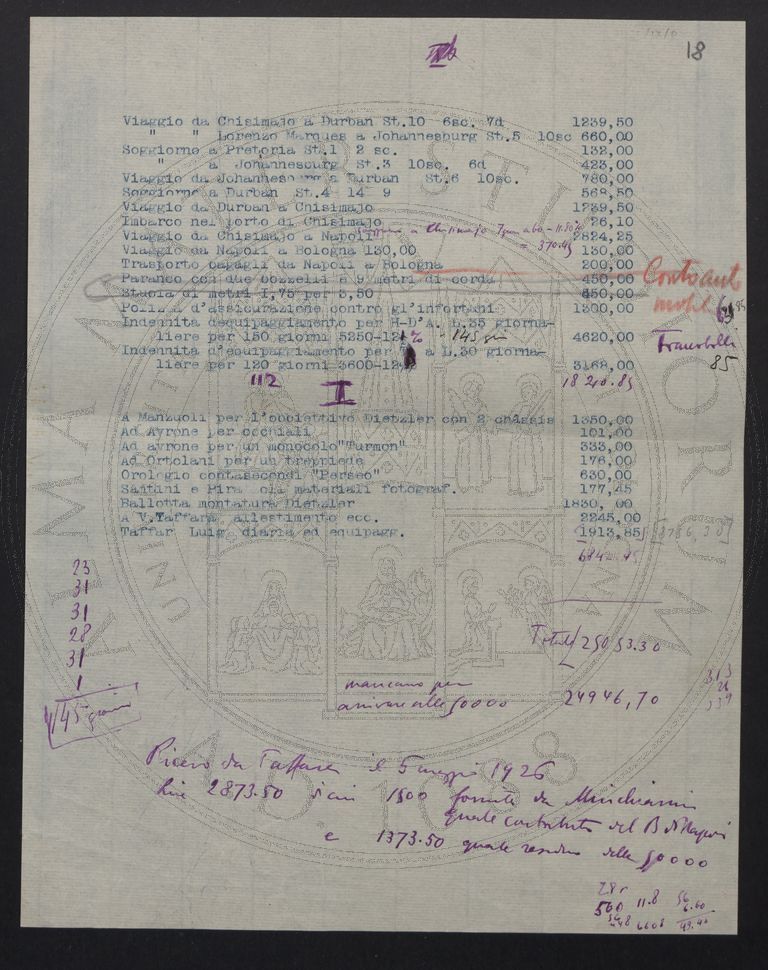 18
Viaggio da Chisimajo a Durban St.10 6sc. 7d 1239,50
" " Lorenzo Marques a Johannesburg St.5 10sc 660,00
Soggiorno a Pretoria St.1 2 sc. 132,00
" a Johannesburg St.3 10sc. 6d 423,00
Viaggio da Johannesburg a Durban St.6 10sc. 780,00
Soggiorno a Durban St.4 14 9 568,50
Viaggio da Durban a Chisimajo 1239,50
Imbarco nel porto di Chisimajo 26,10
a Chisimajo = 370.45
Viaggio da Chisimajo a Napoli 2824,25
Viaggio da Napoli a Bologna 130,00 130,00
Trasporto bagagli da Napoli a Bologna 200,00
Paranco con due bozzelli e 9 metri di corda 450,00
Stuoia di metri 1,75 per 3,50 450,00
Conto auto
Polizza d'assicurazione contro gl'infortuni 1300,00
Indennita dequipaggiamento per H-D'A. L.35 giorna-
liere per 150 giorni 5250-12% 145 4620,00
Francobolli
85
Indennita d'equipaggiamento per a L.30 giorna-
liere per 120 giorni 3600-12% 3168,00
112
I
A Manzuoli per l'obbiettivo Dietzler con 2 châssis 1350,00
Ad Ayrone per occhiali 101,00
Ad ayrone per un monocolo"Turmon" 333,00
Ad Ortolani per un treppiede 176,00
Orologio contasecondi "Perseo" 630,00
Santini e Pira oli materiali fotograf. 177,45
Ballotta montatura Dietzler 1830,00
A V.Taffara allestimento ecc. 2245,00
Taffar Luig. diaria ed equipagg. 1913,85 [3786,30]
23
31
31
28
31
1
145 giorni
Totale 25053.30
mancano per
arrivare alle 50000 24946,70
313
26
339
Ricevo da Taffara il 5 maggio 1926
lire 2873.50 di cui 1500 fornite da
quale contributo del B di Napoli
e 1373.50 quale residuo delle 50000
560 11.8 56
6.60
448 6608